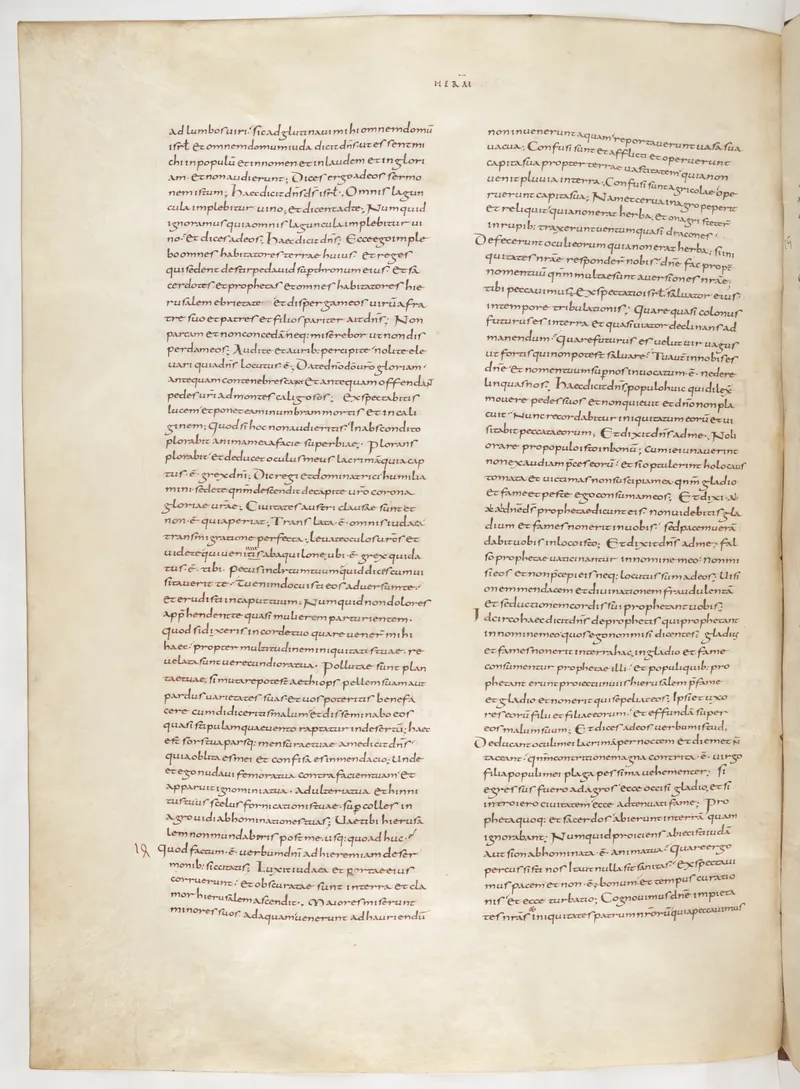 HIEREM
ad lumbos uiri. sic adglutinaui mihi omnem domū
isrl̄ et omnem domum iuda dicit dn̄s. ut essent mi
chi in populū et in nomen et in laudem et in glori
am. et non audierunt; Dices ergo ad eos sermo
nem istum; haec dicit dn̄s ds̄ isrl̄. Omnis lagun
cula implebitur uino, et dicent ad te; Numquid
ignoramus quia omnis laguncula implebitur ui
no. et dices ad eos; Haec dicit dn̄s; Ecce ego imple
bo omnes habitatores terrae huius. et reges
qui sedent de stirpe dauid sup thronum eius. et sa
cerdotes et prophetas et omnes habitatores hie
rusalem ebrietate et dispergam eos uirū a fra
tre suo et patres et filios pariter ait dn̄s; Non
parcam et non concedā neq; miserebor ut non dis
perdam eos; Audite et aurib; percipite. nolite ele
uari quia dn̄s locutus ē; Date dn̄o dō uro gloriam
antequam contenebrescat et antequam offendant
pedes uri ad montes caligosos; Expectabitis
lucem et ponet eam in umbram mortis et in cali
ginem; Quod si hoc non audieritis. In abscondito
plorabit anima mea a facie superbiae; Plorans
plorabit et deducet oculus meus lacrimā quia cap
tus ē grex dn̄i; Dic regi et dominatrici humilia
mini sedete qn̄m descendit de capite uro corona
gloriae urae; Ciuitates austri clausae sunt et
non ē qui aperiat; Translata ē omnis iudaea
transmigratione perfecta, Leuate oculos uros et
uidete qui uenitis ab aquilone; ubi ē grex qui da
tus ē tibi. pecus inclitum tuum; Quid dices cum ui
sitauerit te. Tu enim docuisti eos aduersum te.
et erudisti in caput tuum; Numquid non dolores
app̄hendent te quasi mulierem parturientem.
Quod si dixeris in corde tuo quare uener̄ mihi
haec. propter multitudinem iniquitatis tuae. re
uelata sunt uerecundiora tua. pollutae sunt plan
tae tuae; si mutare potest aethiops pellem suam aut
pardus uarietates suas. et uos poteritis benefa
cere cum didiceritis malum. et disseminabo eos
quasi stipulam quae uento raptatur in deserto; haec
est sors tua parsq; mensurae tuae a me dicit dn̄s
quia oblita es mei et confisa es in mendacio; Unde
et ego nudaui femora tua contra faciem tuam et
apparuit ignominia tua. adulteria tua et hinni
tus tuus scelus fornicationis tuae. sup colles in
agro uidi abhominationes tuas; Uae tibi hierusa
lem non mundaberis post me. usq; quo adhuc.
Quod factum ē uerbum dn̄i ad hieremiam de ser
monib; siccitatis; Luxit iudaea et portae eius
corruerunt. et obscuratae sunt in terra et cla
mor hierusalem ascendit. Maiores miserunt
minores suos ad aquam uenerunt ad hauriendū
non inuenerunt aquam. reportauerunt uasa sua
uacua; Confusi sunt et afflicti et operuerunt
capita sua propter terrae uastitatem. quia non
uenit pluuia in terra; Confusi sunt agricolae ope
ruerunt capita sua; Nam et cerua in agro peperit
et reliquit. quia non erat herba, et onagri steter̄
in rupib; traxerunt uentum quasi dracones.
Defecerunt oculi eorum quia non erat herba; si ini
quitates nrae responder̄ nobis dn̄e. fac propt
nomen tuū qn̄m multae sunt auersiones nrae,
tibi peccauimus; Exspectatio isrl̄. saluator eius
in tempore tribulationis; Quare quasi colonus
futurus es in terra et quasi uiator declinans ad
manendum Quare futurus es uelut uir uagus
ut fortis qui non potest saluare. Tu aut̄ in nobis es
dn̄e et nomen tuum sup nos inuocatum ē nedere
linquas nos; Haec dicit dn̄s populo huic qui dilex
mouere pedes suos et non quieuit et dn̄o non pla
cuit. Nunc recordabitur iniquitatum eorū et ui
sitabit peccata eorum, Et dixit dn̄s ad me; Noli
orare pro populo isto in bonū; Cum ieiunauerint
non exaudiam p̄ces eorū. et si optulerint holocaus
tomata et uictimas non suscipiam ea. qn̄m gladio
et fame et peste ego consumam eos; Et dixi a a
a dn̄e ds̄ prophetae dicunt eis. non uidebitis gla
dium et fames non erit in uobis. sed pacem ueram
dabit uobis in loco isto; Et dixit dn̄s ad me; fal
so prophetae uaticinantur in nomine meo. non mi
si eos et non p̄cepi eis. neq; locutus sum ad eos; Uisi
onem mendacem et diuinationem fraudulentā
et seductionem cordis sui prophetant uobis;
Idcirco haec dicit dn̄s de prophetis qui prophetant
in nomine meo quos ego non misi dicentes. gladius
et fames non erit in terra hac, in gladio et fame
consumentur prophetae illi. et populi quib; pro
phetant erunt proiecti in uiis hierusalem p̄ fame
et gladio et non erit qui sepeliat eos; Ipsi et uxo
res eorū filii et filiae eorum. et effundā super
eos malum suum; Et dices ad eos uerbum istud.
Deducant oculi mei lacrimā per noctem et diem et n̄
taceant. qn̄m contritione magna contrita ē uirgo
filia populi mei plaga pessima uehementer; si
egressus fuero ad agros. ecce occisi gladio, et si
introiero ciuitatem. ecce adtenuati fame; Pro
pheta quoq; et sacerdos abierunt in terrā quam
ignorabant; Numquid proiciens abiecisti iudā
aut sion abhominata ē anima tua. Quare ergo
percussisti nos. Ita ut nulla sit sanitas. Exspectaui
mus pacem et non ē bonum. et tempus curatio
nis. et ecce turbatio; Cognouimus dn̄e impieta
tes nras & iniquitates patrum nrorū quia peccauimus